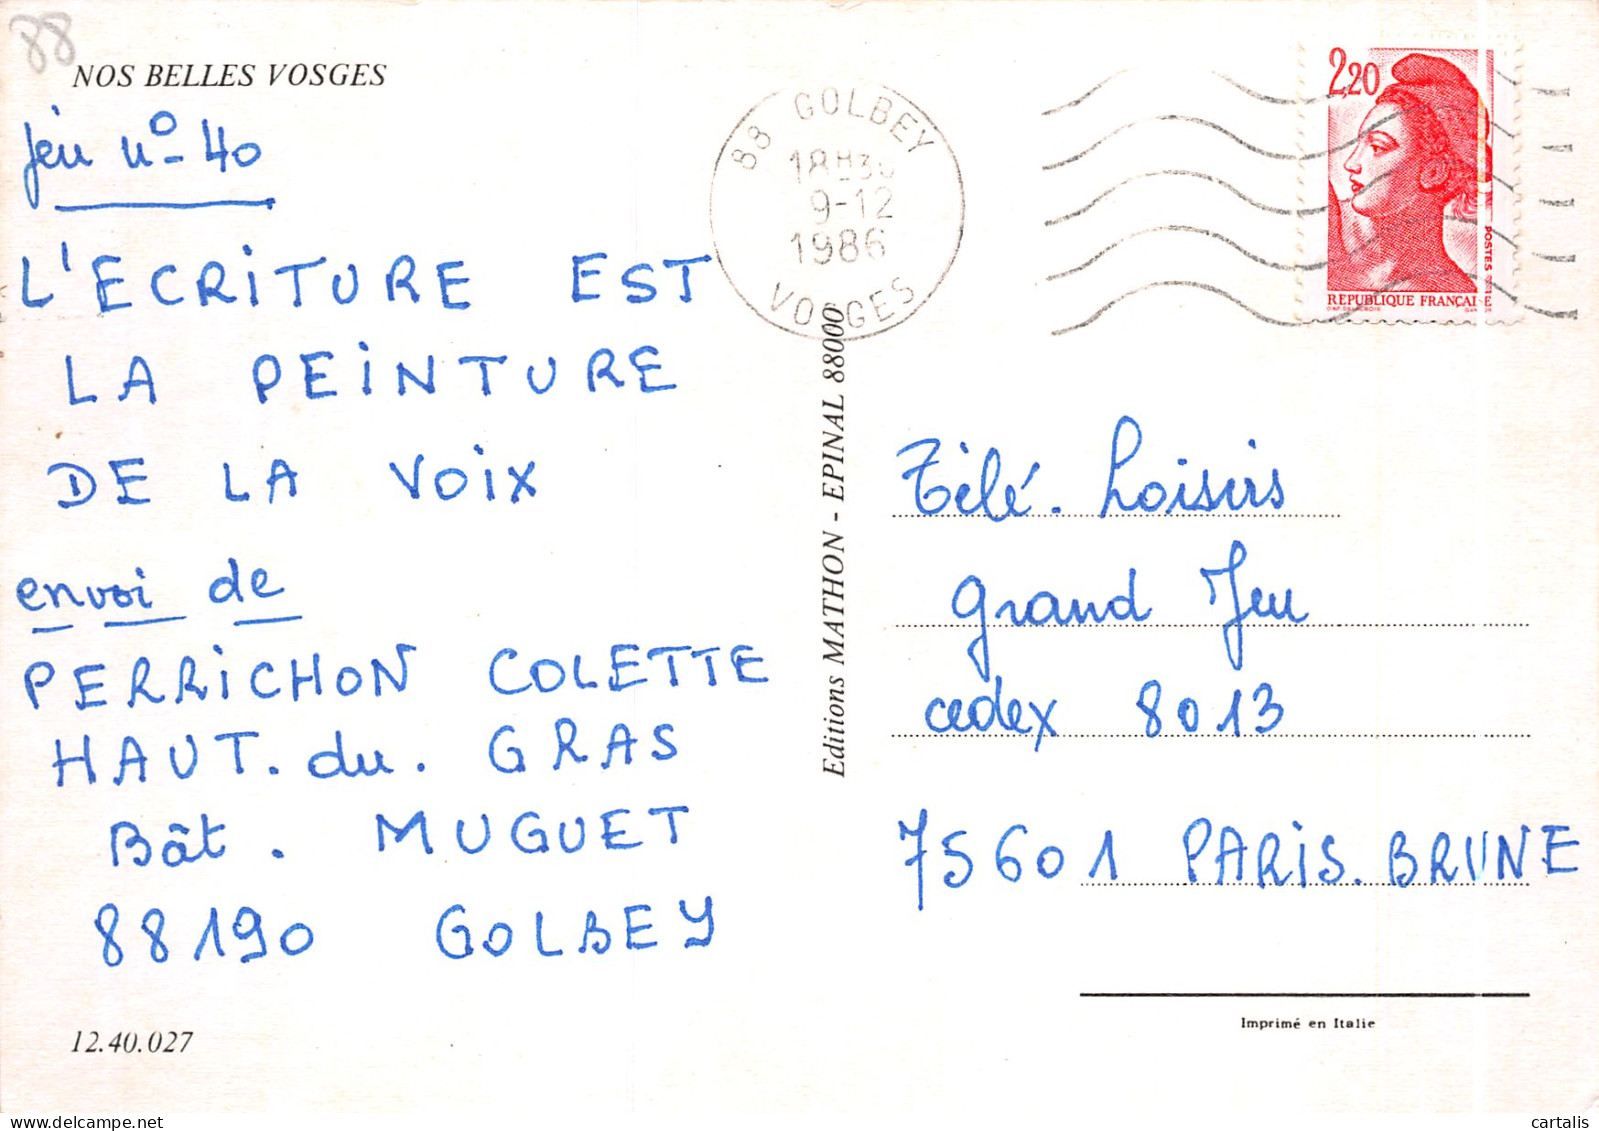 88
NOS BELLES VOSGES
jeu n° 40
L'ECRITURE EST
LA PEINTURE
DE LA VOIX
envoi de
PERRICHON COLETTE
HAUT. du. GRAS
Bât. MUGUET
88190 GOLBEY
12.40.027
Editions MATHON - EPINAL 88000
88 GOLBEY
18H30
9-12
1986
VOSGES
2,20
POSTES
REPUBLIQUE FRANÇAISE
Télé. Loisirs
Grand Jeu
cedex 8013
75601 PARIS. BRUNE
Imprimé en Italie
cartalis.com